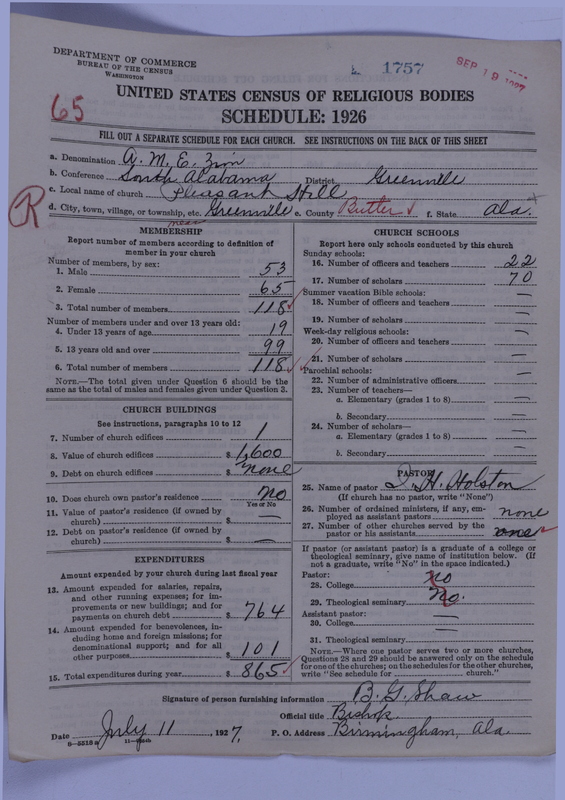 DEPARTMENT OF COMMERCE
BUREAU OF THE CENSUS
WASHINGTON
1757
SEP 19 1927
65
UNITED STATES CENSUS OF RELIGIOUS BODIES
SCHEDULE: 1926
FILL OUT A SEPARATE SCHEDULE FOR EACH CHURCH. SEE INSTRUCTIONS ON THE BACK OF THIS SHEET
a. Denomination A. M. E. Zion
b. Conference South Alabama District Greenville
c. Local name of church Pleasant Hill
R
d. City, town, village, or township, etc. near Greenville e. County Butler f. State Ala.
MEMBERSHIP
Report number of members according to definition of member in your church
Number of members, by sex:
1. Male 53
2. Female 65
3. Total number of members 118
Number of members under and over 13 years old:
4. Under 13 years of age 19
5. 13 years old and over 99
6. Total number of members 118
NOTE.—The total given under Question 6 should be the same as the total of males and females given under Question 3.
CHURCH BUILDINGS
See instructions, paragraphs 10 to 12
7. Number of church edifices 1
8. Value of church edifices $ 1,600
9. Debt on church edifices $ none
10. Does church own pastor's residence no
Yes or No
11. Value of pastor's residence (if owned by church) $ —
12. Debt on pastor's residence (if owned by church) $ —
EXPENDITURES
Amount expended by your church during last fiscal year
13. Amount expended for salaries, repairs, and other running expenses; for improvements or new buildings; and for payments on church debt $ 764
14. Amount expended for benevolences, including home and foreign missions; for denominational support; and for all other purposes $ 101
15. Total expenditures during year $ 865
CHURCH SCHOOLS
Report here only schools conducted by this church
Sunday schools:
16. Number of officers and teachers 22
17. Number of scholars 70
Summer vacation Bible schools:
18. Number of officers and teachers —
19. Number of scholars —
Week-day religious schools:
20. Number of officers and teachers —
21. Number of scholars —
Parochial schools:
22. Number of administrative officers —
23. Number of teachers—
a. Elementary (grades 1 to 8) —
b. Secondary —
24. Number of scholars—
a. Elementary (grades 1 to 8) —
b. Secondary —
PASTOR
25. Name of pastor H. Holston
(If church has no pastor, write "None")
26. Number of ordained ministers, if any, employed as assistant pastors none
27. Number of other churches served by the pastor or his assistants one
If pastor (or assistant pastor) is a graduate of a college or theological seminary, give name of institution below. (If not a graduate, write "No" in the space indicated.)
Pastor:
28. College No
29. Theological seminary No.
Assistant pastor:
30. College —
31. Theological seminary —
NOTE.—Where one pastor serves two or more churches, Questions 28 and 29 should be answered only on the schedule for one of the churches; on the schedules for the other churches, write "See schedule for church."
Signature of person furnishing information B. G. Shaw
Official title Bishop
Date July 11, 1927. P. O. Address Birmingham, Ala.